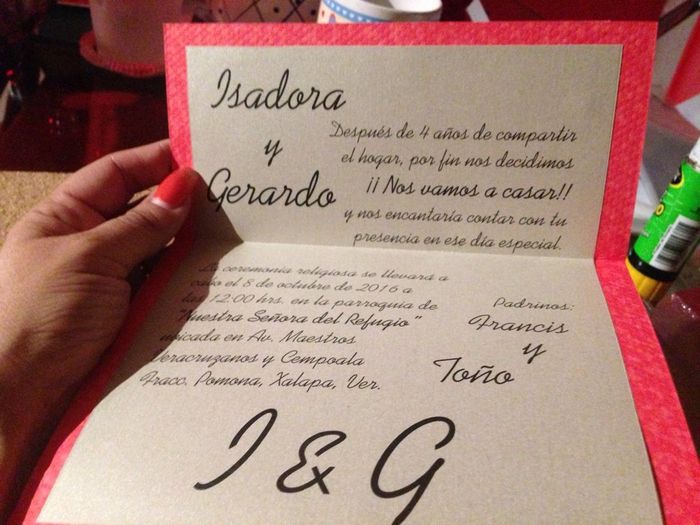 Isadora
y
Gerardo
Después de 4 años de compartir
el hogar, por fin nos decidimos
¡¡ Nos vamos a casar!!
y nos encantaría contar con tu
presencia en ese día especial.
La ceremonia religiosa se llevará a
cabo el 8 de octubre de 2016 a
las 12:00 hrs. en la parroquia de
"Nuestra Señora del Refugio"
ubicada en Av. Maestros
Veracruzanos y Cempoala
Fracc. Pomona, Xalapa, Ver.
Padrinos:
Francis
y
Toño
I & G